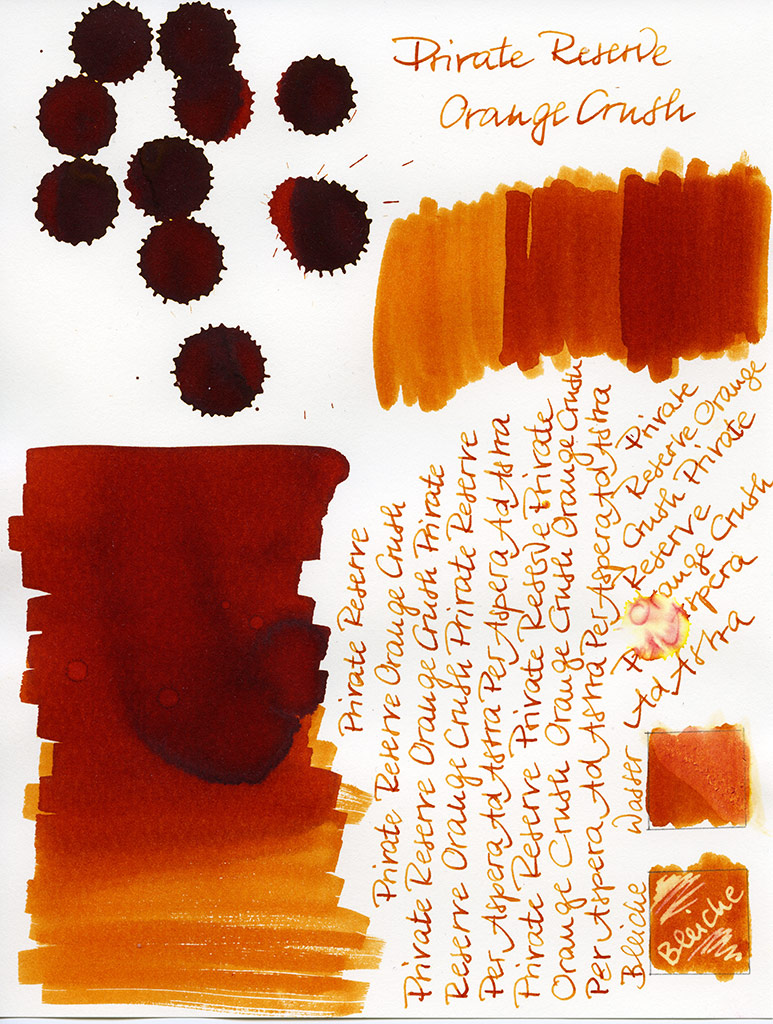 Private Reserve
Orange Crush
Private Reserve
Private Reserve Orange Crush
Private Reserve Orange Crush Private
Reserve Orange Crush Private Reserve
Per Aspera Ad Astra Per Aspera Ad Astra
Private Reserve Private Reserve Private
Orange Crush Orange Crush Orange Crush
Per Aspera Ad Astra Per Aspera Ad Astra
Private
Reserve Orange
Crush Private
Reserve
Orange Crush
Aspera
Ad Astra
Wasser
Bleiche
Bleiche